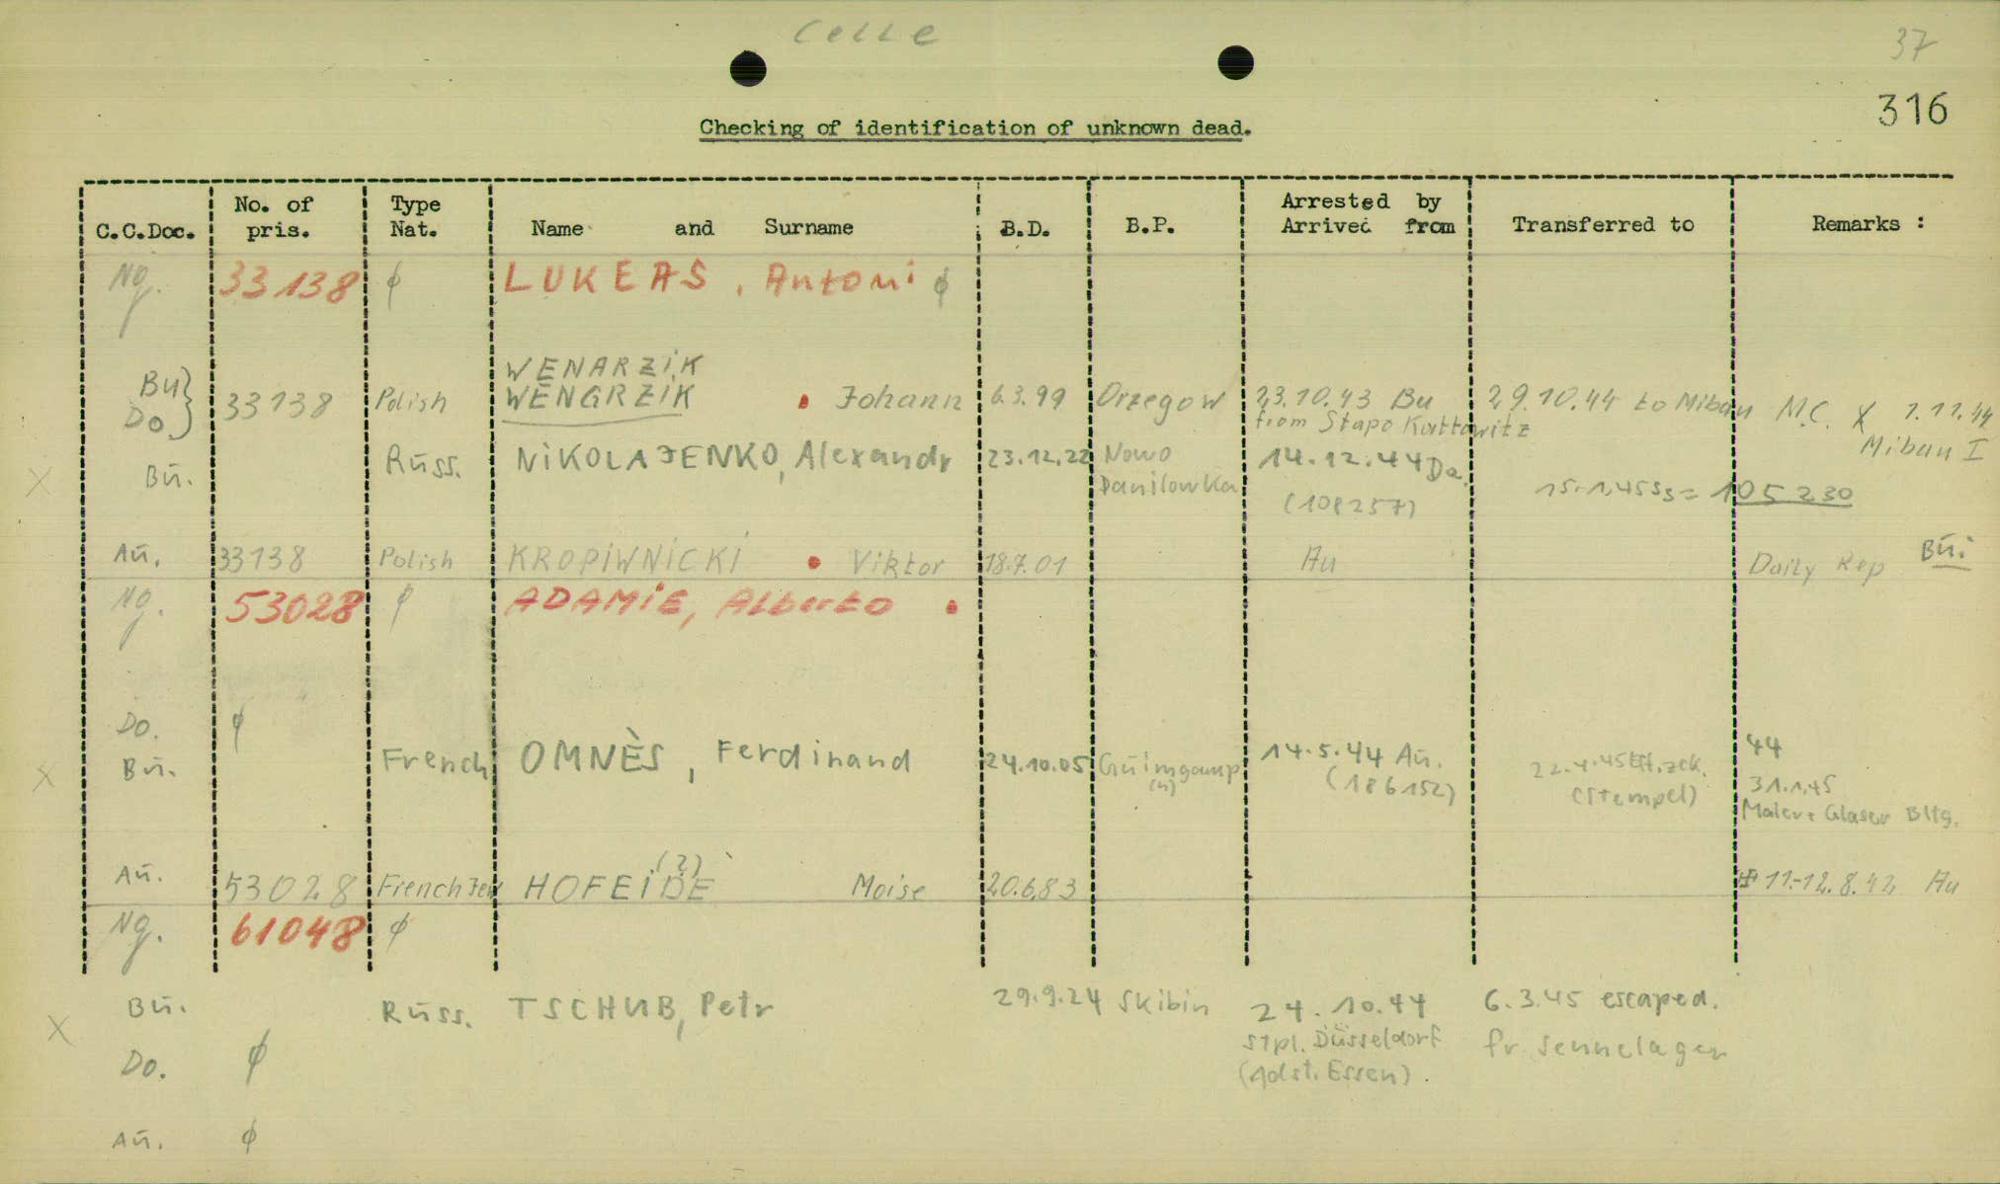 Celle
37
316
Checking of identification of unknown dead.
C.C.Doc. No. of pris. Type Nat. Name and Surname B.D. B.P. Arrested by Arrived from Transferred to Remarks :
Ng. 33138 ϕ LUKEAS, Antoni ϕ
WENARZIK
Bu} Do} 33138 Polish WENGRZIK • Johann 6.3.99 Orzegow 23.10.43 Bu 29.10.44 to Mibau M.C. X 1.11.44
from Stapo Kattowitz Mibau I
X Bū. Rūss. NIKOLAJENKO, Alexandr 23.12.22 Nowo Danilowka 14.12.44 Da.
(108257) 15.1.45 S3 = 105230
Aū. 33138 Polish KROPIWNICKI • Viktor 18.7.01 Au Daily Rep Bū.
Ng. 53028 ϕ ADAMIE, Alberto •
Do. ϕ
X Bū. French OMNÈS, Ferdinand 24.10.05 Guimgamp 14.5.44 Aū. 44
(186152) (Stempel) 31.1.45
Maler+ Glaser Bltg.
(?)
Aū. 53028 French Jew HOFEIDE Moise 20.6.83 11.-12.8.42 Au
Ng. 61048 ϕ
X Bū. Rūss. TSCHUB, Petr 29.9.24 Skibin 24.10.44 6.3.45 escaped.
Stpl. Düsseldorf fr. Sennelager
Do. ϕ (Adst. Essen).
Aū. ϕ